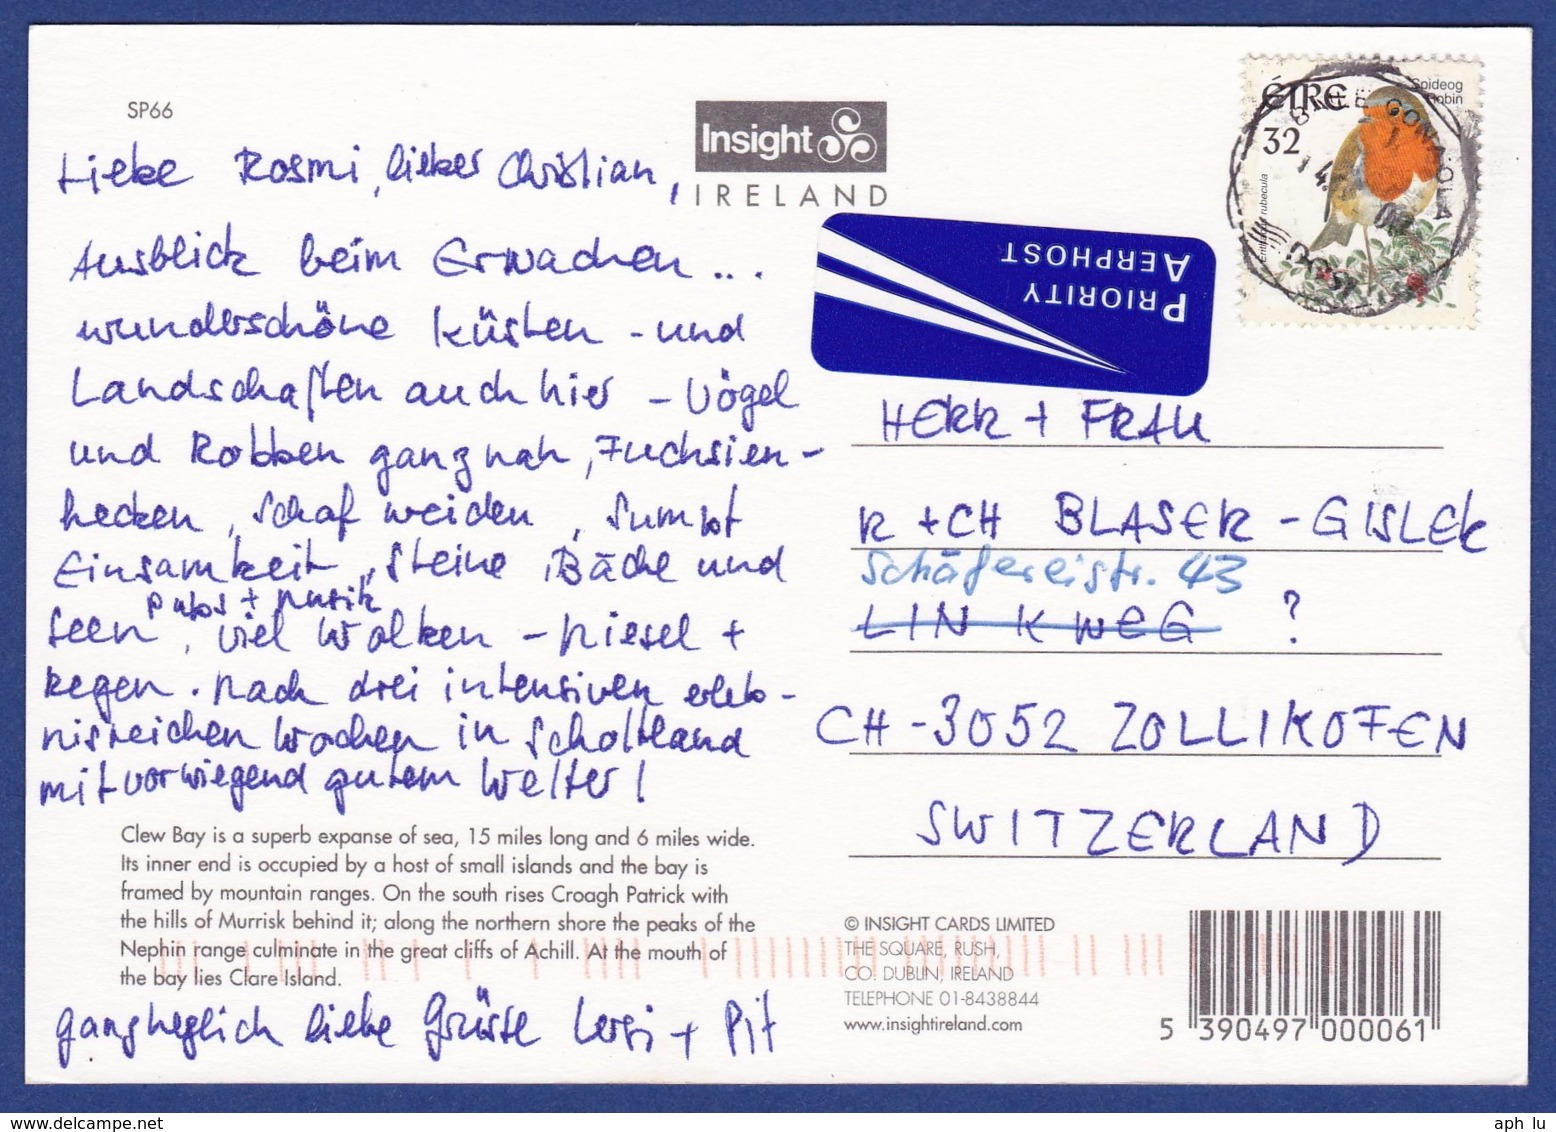 SP66
Insight
IRELAND
Liebe Rosmi, lieber Christian,
Ausblick beim Erwachen...
wunderschöne Küsten - und
Landschaften auch hier - Vögel
und Robben ganz nah, Fuchsien-
hecken, Schafweiden, Sumpf
Einsamkeit, Steine, Bäche und
pubs + Musik
Seen, viel Wolken - Niesel +
Regen. Nach drei intensiven erleb-
nisreichen Wochen in Schottland
mit vorwiegend gutem Wetter!
Clew Bay is a superb expanse of sea, 15 miles long and 6 miles wide.
Its inner end is occupied by a host of small islands and the bay is
framed by mountain ranges. On the south rises Croagh Patrick with
the hills of Murrisk behind it; along the northern shore the peaks of the
Nephin range culminate in the great cliffs of Achill. At the mouth of
the bay lies Clare Island.
ganz herzlich liebe Grüsse + Pit
Spideog
Robin
ÉIRE
32
rubecula
PRIORITY
AERPHOST
HERR + FRAU
R + CH BLASER - GISLER
Schäfereistr. 43
LINKWEG ?
CH - 3052 ZOLLIKOFEN
SWITZERLAND
© INSIGHT CARDS LIMITED
THE SQUARE, RUSH,
CO. DUBLIN, IRELAND
TELEPHONE 01-8438844
www.insightireland.com
5 390497 000061
aph lu